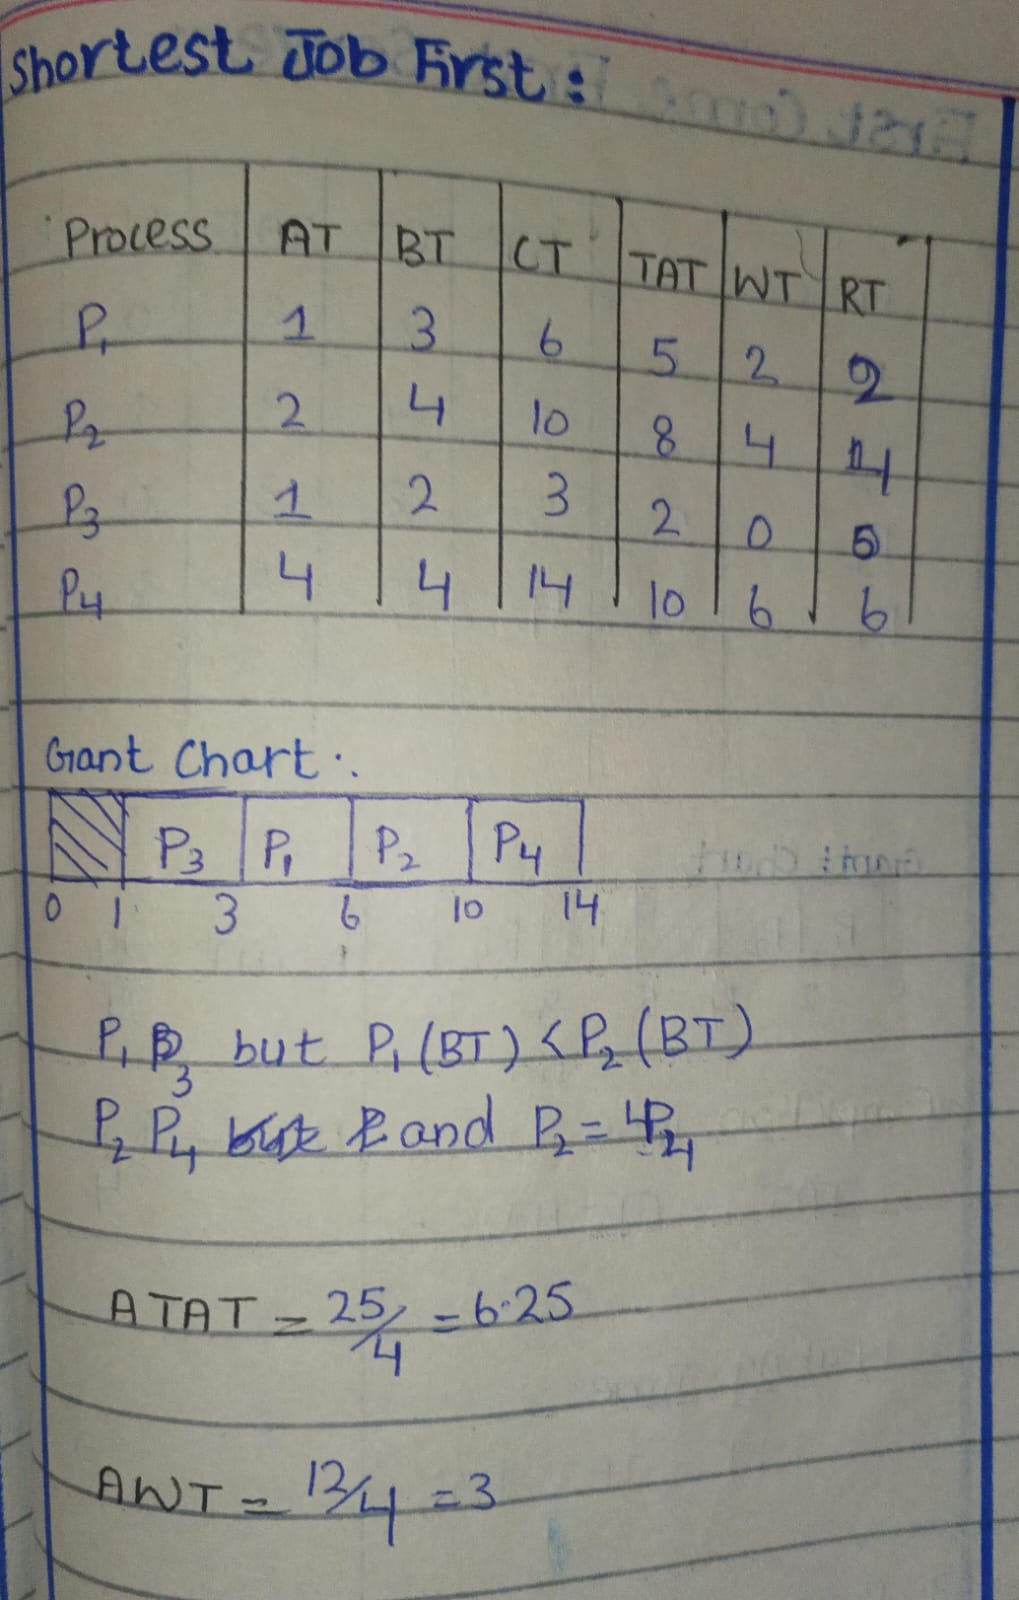 Shortest Job First :
Process AT BT CT TAT WT RT
P1 1 3 6 5 2 2
P2 2 4 10 8 4 4
P3 1 2 3 2 0 0
P4 4 4 14 10 6 6
Gant Chart :.
P3 P1 P2 P4
0 1 3 6 10 14
P1 P3 but P1 (BT) < P2 (BT)
P2 P4 and P2 = P4
ATAT = 25/4 = 6.25
AWT = 12/4 = 3